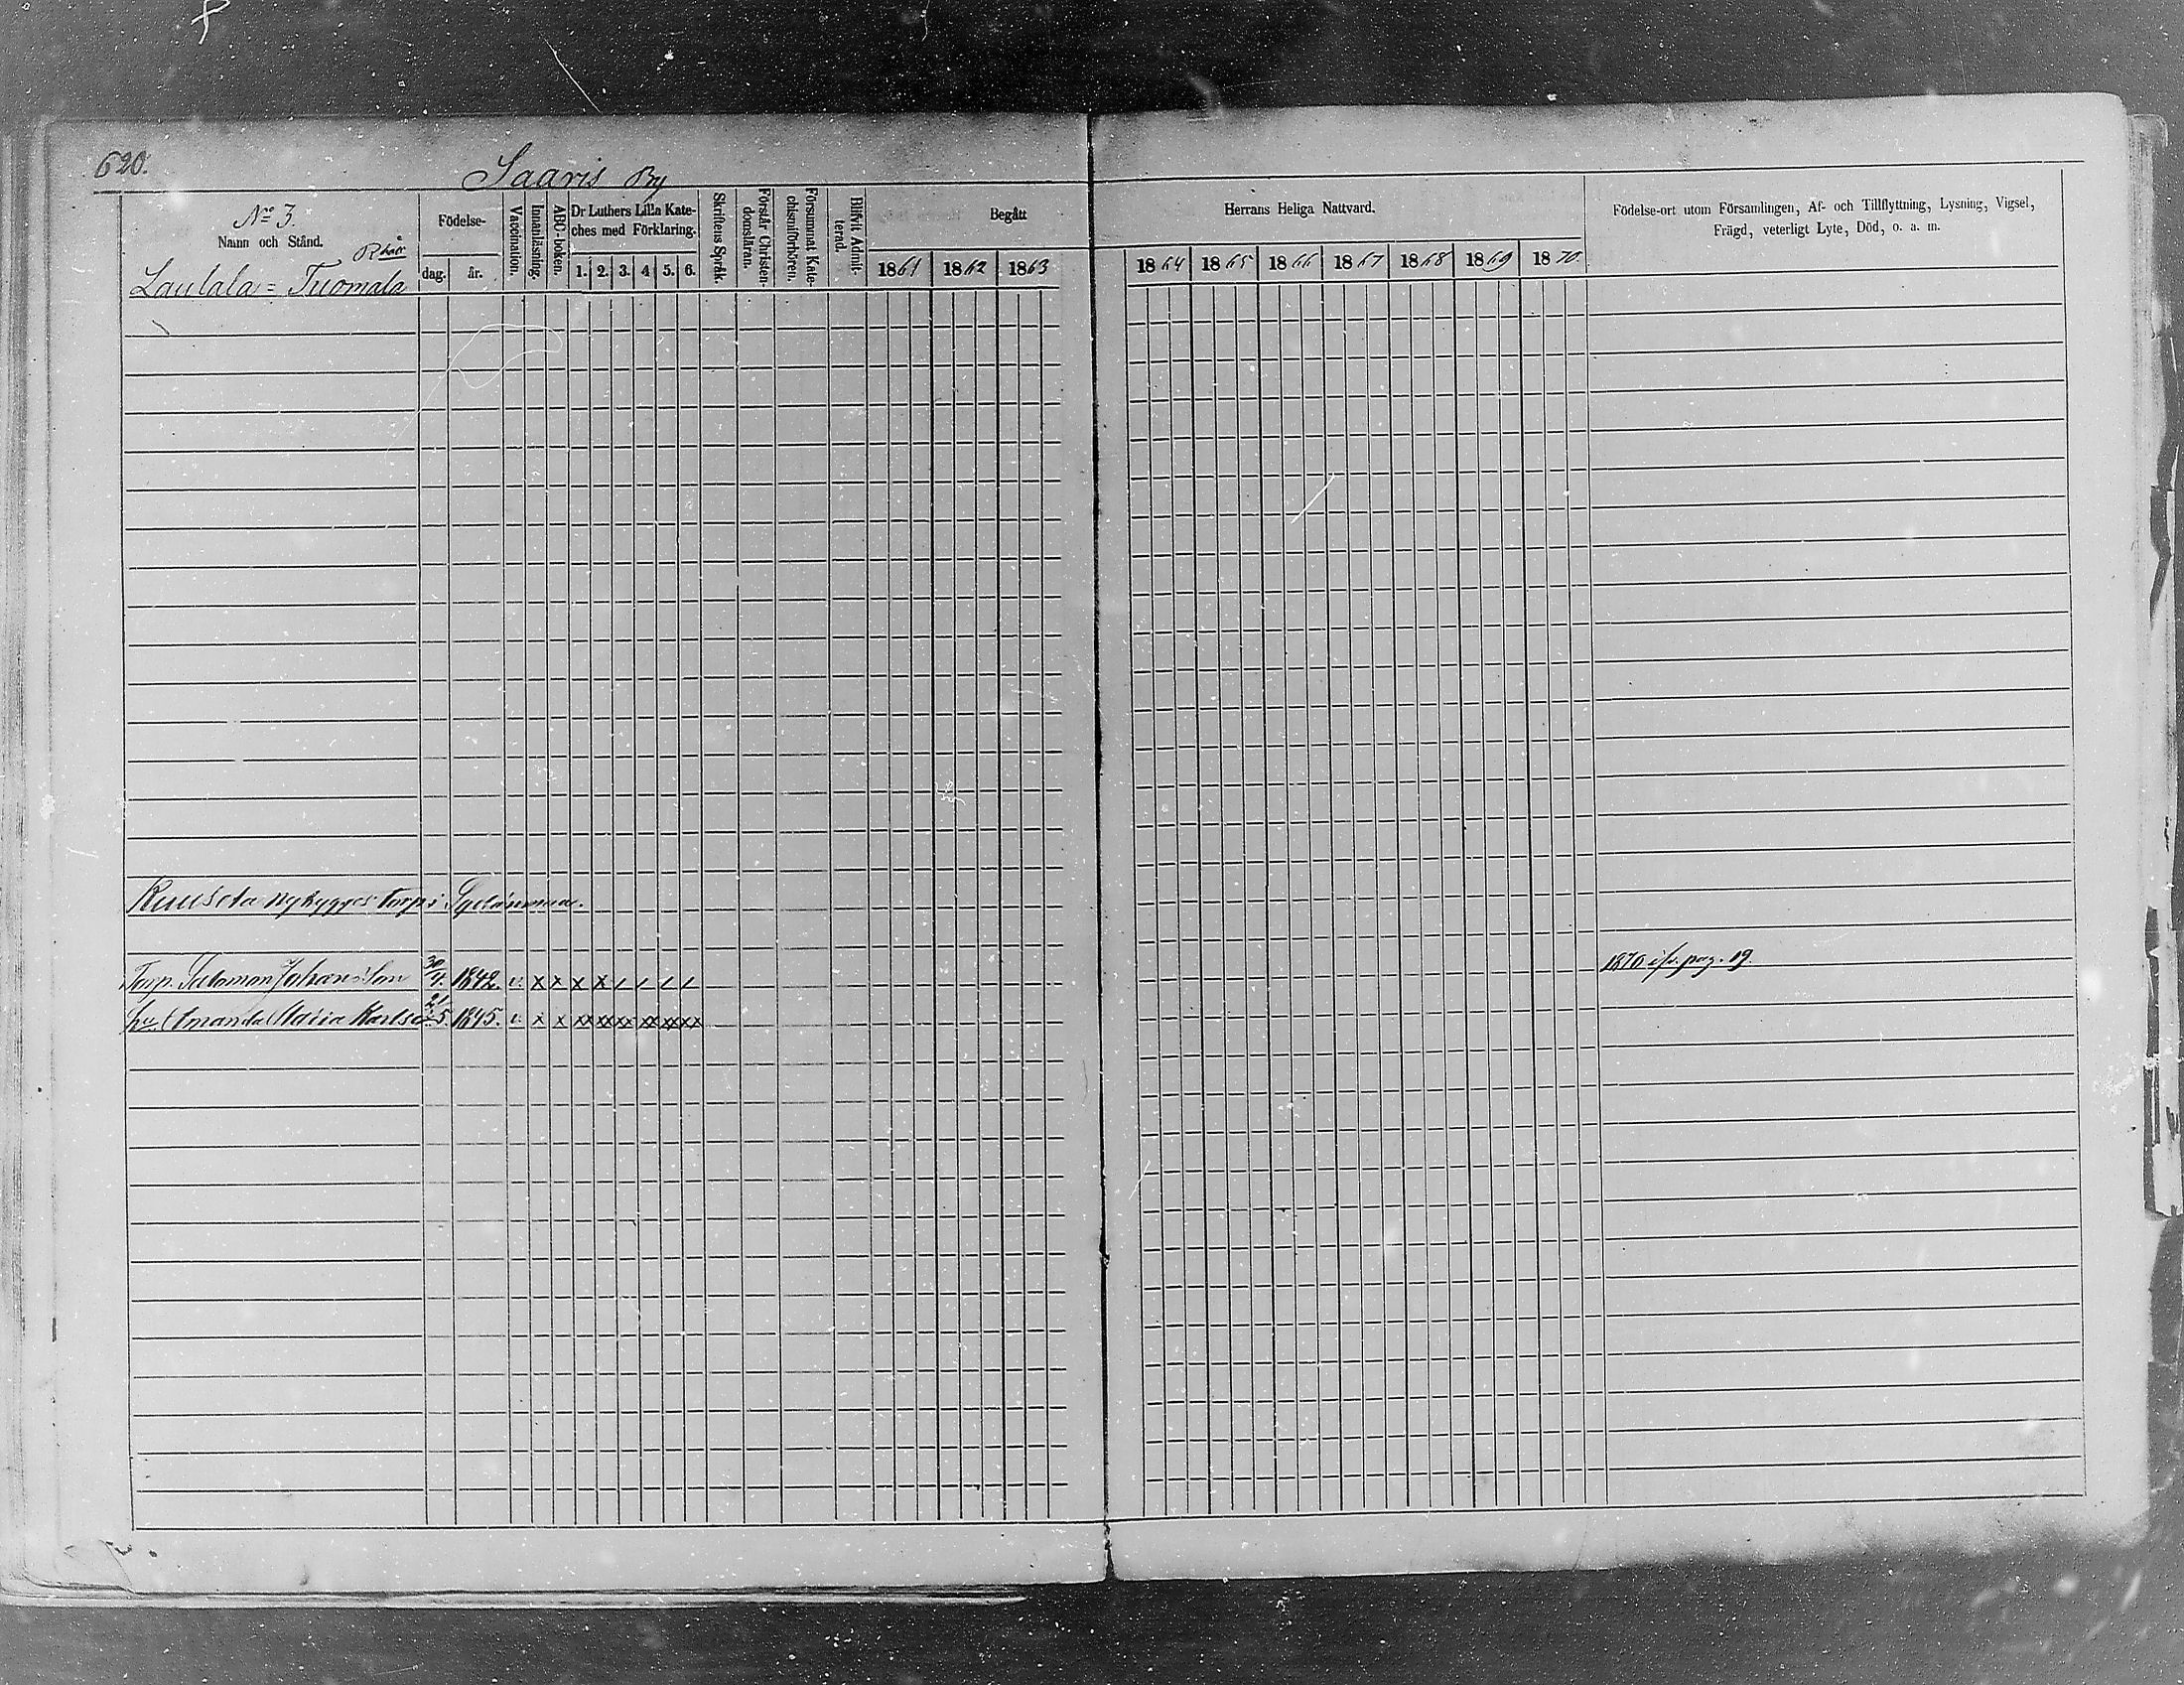 620.
Saaris By
No 3.
Namn och Stånd.
Laulala = Tuomala
Födelse-
dag. år.
Vaccination.
Innanläsning.
ABC-boken.
Dr Luthers Lilla Kate-
ches med Förklaring.
1. 2. 3. 4 5. 6.
Skriftens Språk.
Förstår Christen-
domsläran.
Försummat Kate-
chismiförhören.
Blifvit Admit-
terad.
Begått
1861 1862 1863
Herrans Heliga Nattvard.
1864 1865 1866 1867 1868 1869 1870
Födelse-ort utom Församlingen, Af- och Tillflyttning, Lysning, Vigsel,
Frägd, veterligt Lyte, Död, o. a. m.
nybygges torp i
Torp. Salomon Johansson 30/4. 1842. v. x x x x / / / / 1870 pag. 19.
hu Amanda Maria Karlsd. 21/5. 1845. v. x x xx xx xx xx xx xx